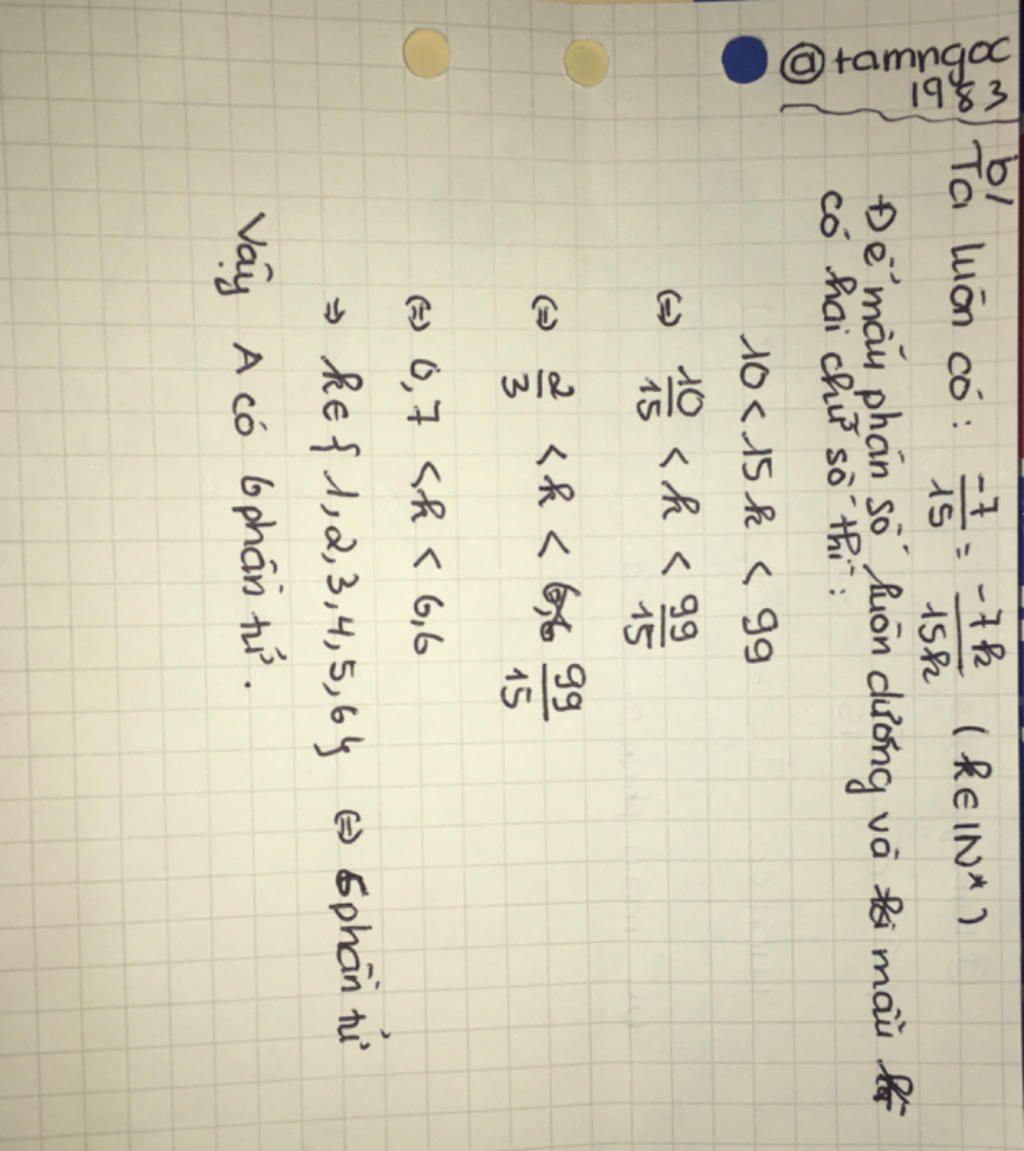 @tamngoc
1983
b/
Ta luôn có: -7/15 = -7k/15k (k∈IN*)
Để mẫu phân số luôn dương và mẫu
có hai chữ số thì:
10 < 15k < 99
(=) 10/15 < k < 99/15
(=) 2/3 < k < 99/15
(=) 0,7 < k < 6,6
⇒ k∈{1,2,3,4,5,6} (=) 6 phần tử
Vậy A có 6 phần tử.